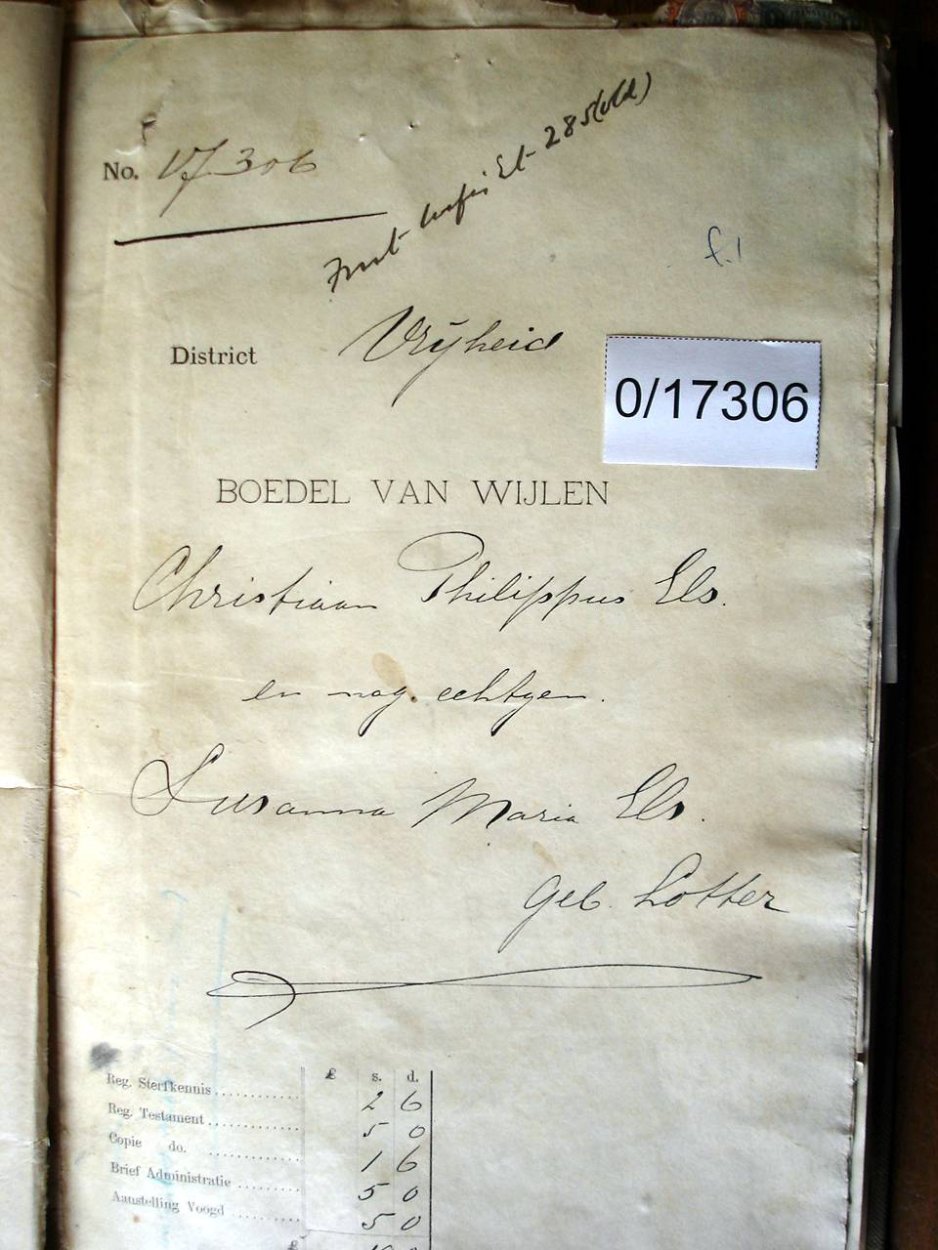 No. 17306
Et 285 (old)
f.1
District Vrijheid
0/17306
BOEDEL VAN WIJLEN
Christiaan Philippus Els.
en nag. echtgen.
Susanna Maria Els.
geb. Lotter
£ s. d.
Reg. Sterfkennis 2 6
Reg. Testament 5 0
Copie do. 1 6
Brief Administratie 5 0
Aanstelling Voogd 5 0
£